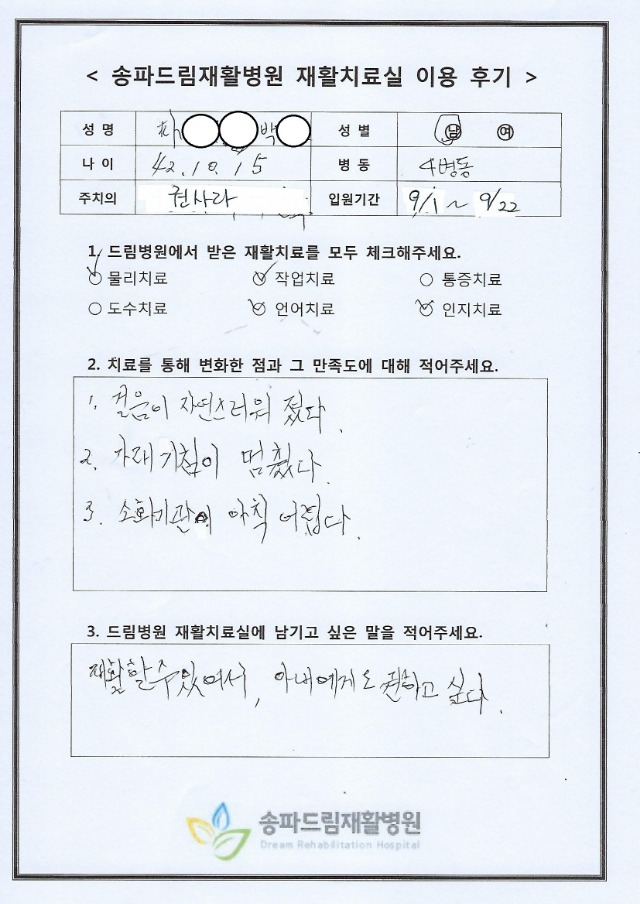 < 송파드림재활병원 재활치료실 이용 후기 >
성 명 박 성 별 남 여
나 이 42.10.15 병 동 4병동
주치의 권사라 입원기간 9/1 ~ 9/22
1. 드림병원에서 받은 재활치료를 모두 체크해주세요.
물리치료 작업치료 통증치료
도수치료 언어치료 인지치료
2. 치료를 통해 변화한 점과 그 만족도에 대해 적어주세요.
1. 걸음이 자연스러워 졌다.
2. 가래기침이 멈췄다.
3. 소화기관이 아직 어렵다.
3. 드림병원 재활치료실에 남기고 싶은 말을 적어주세요.
재활할수있어서, 아내에게도 권하고 싶다.
송파드림재활병원
Dream Rehabilitation Hospital